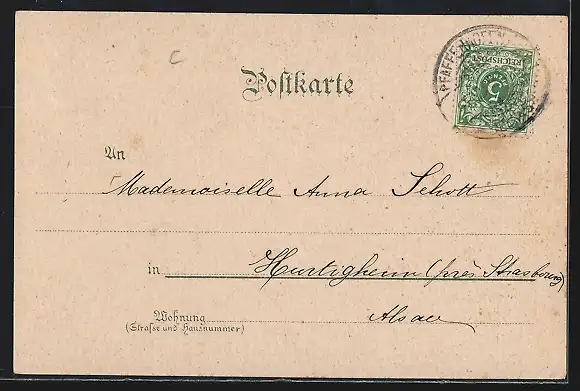 C
Postkarte
PFAFFENHOFEN
REICHSPOST
5
An
Mademoiselle Anna Schott
in Hurtigheim (près Strasbourg)
Wohnung Alsace
(Strasse und Hausnummer)